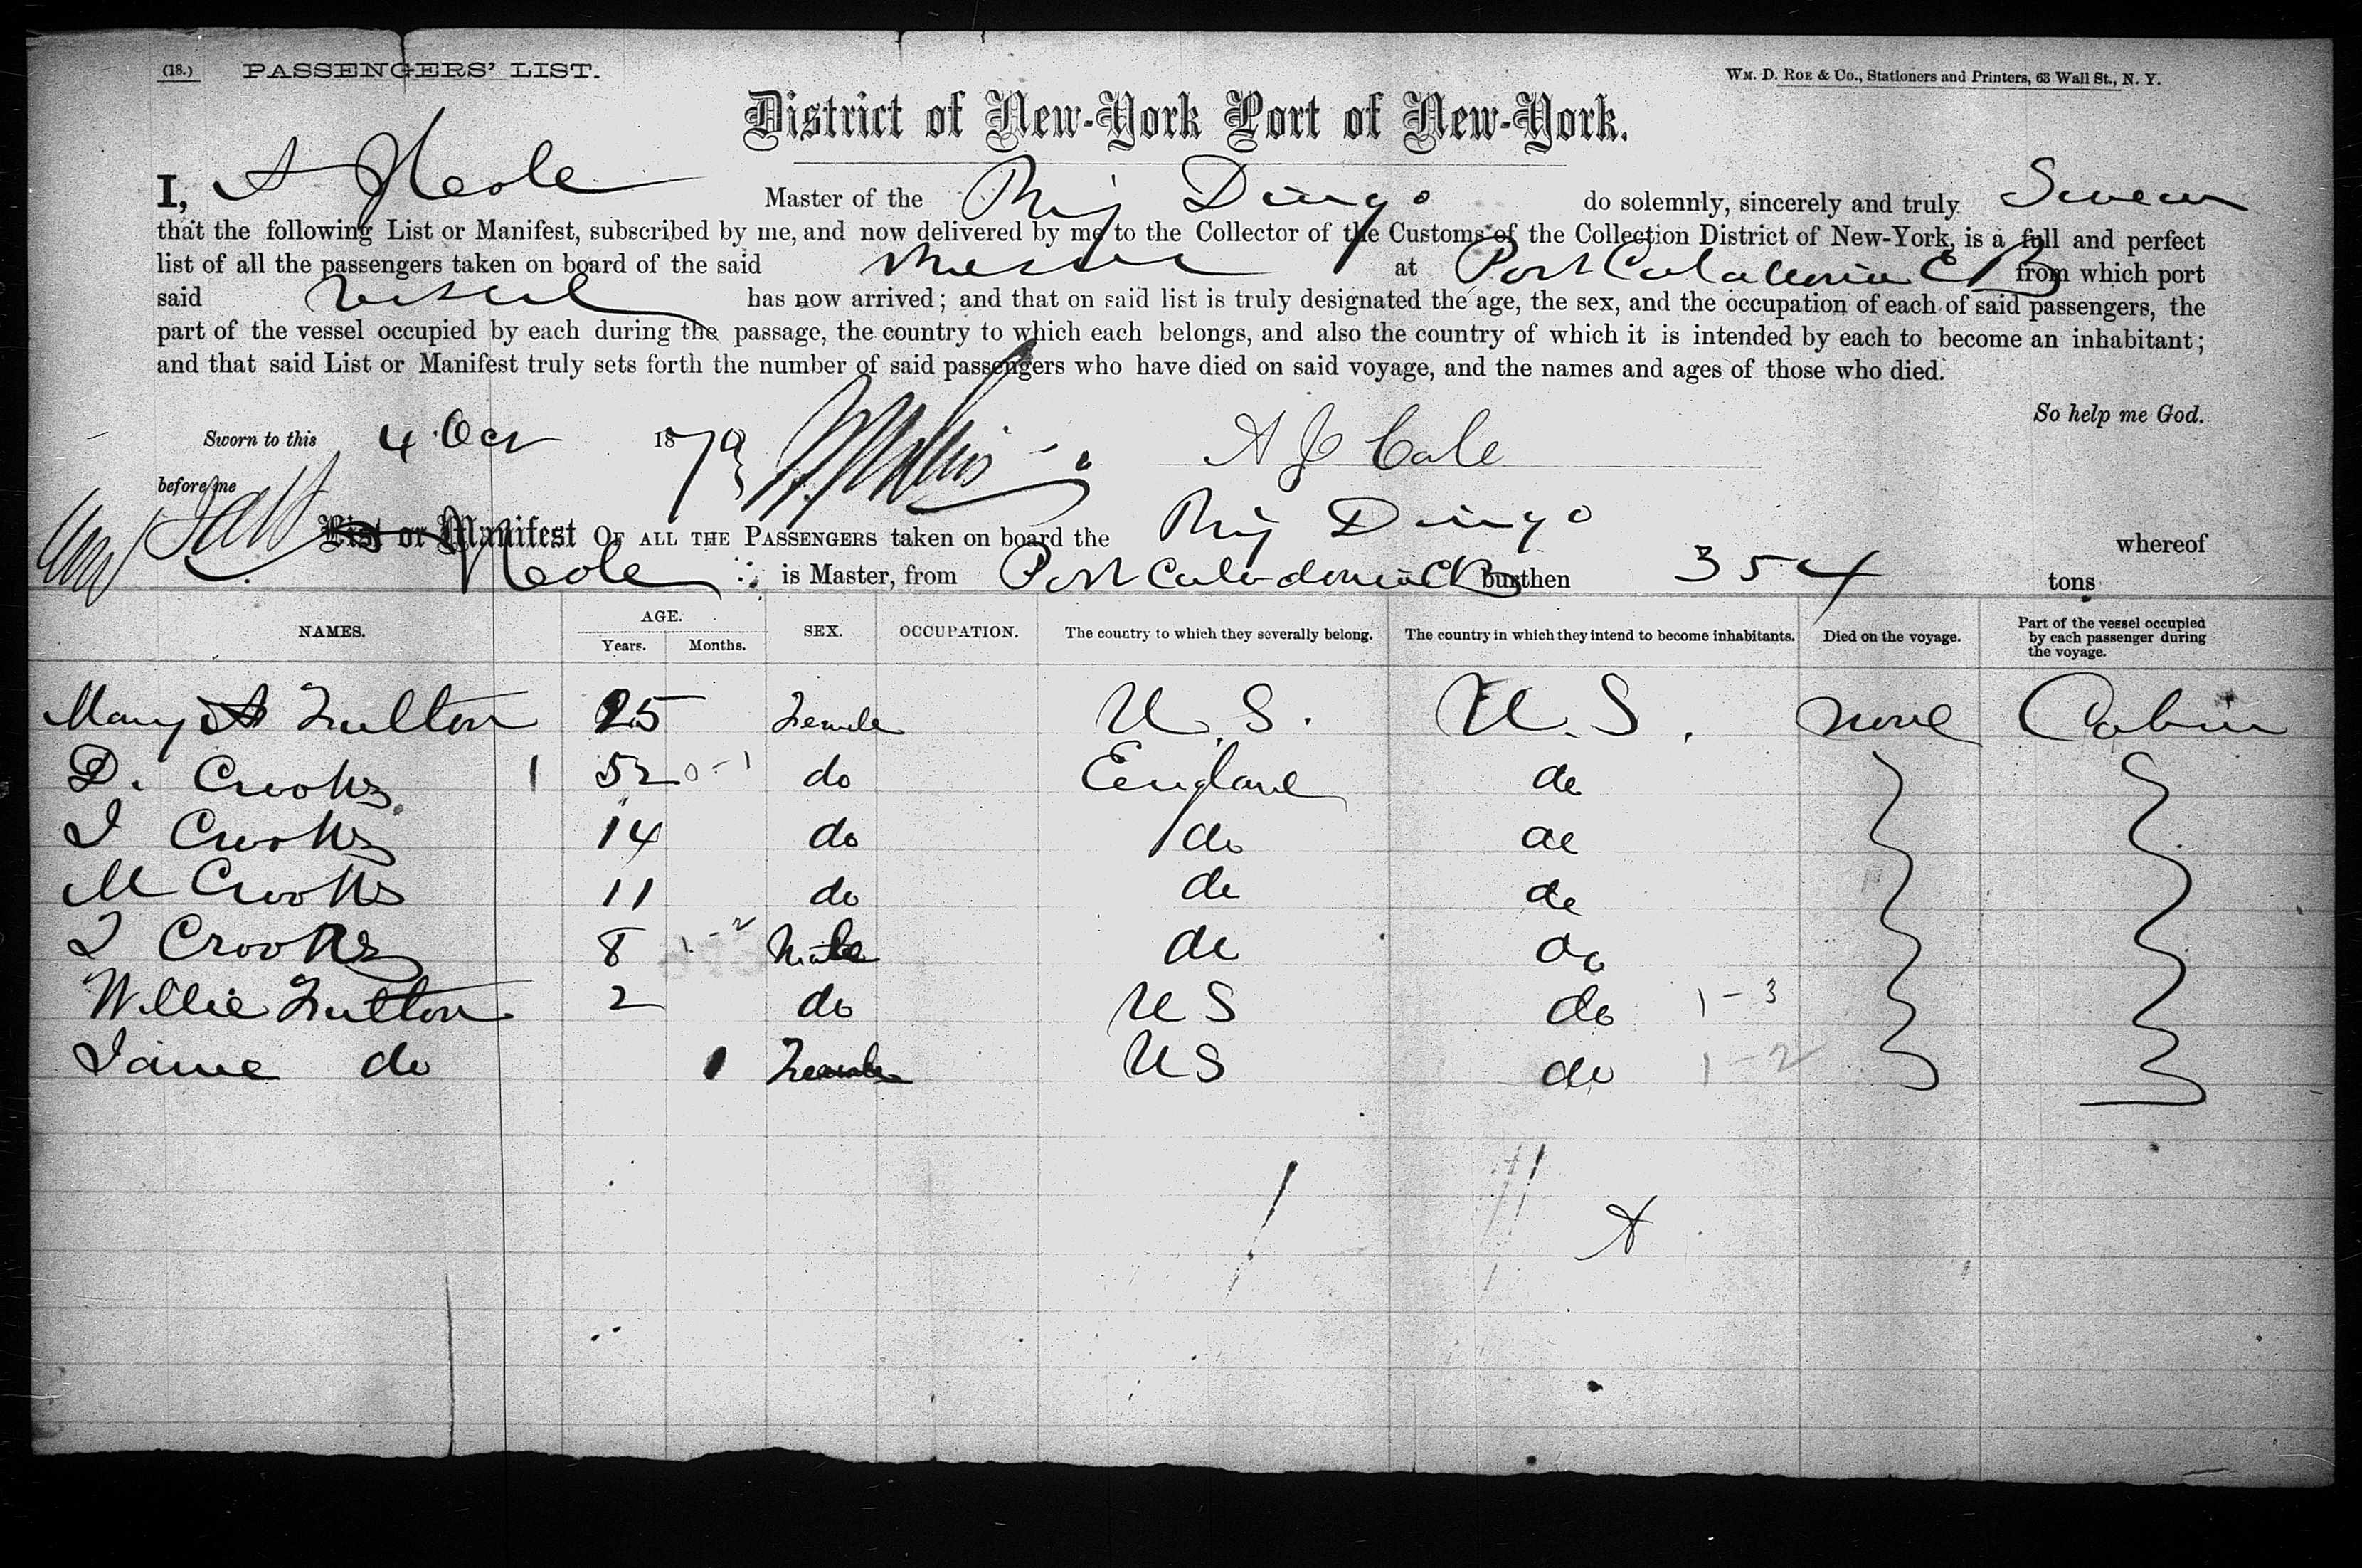 (18.) PASSENGERS' LIST.
WM. D. ROE & Co., Stationers and Printers, 63 Wall St., N. Y.
District of New-York Port of New-York.
I, A Master of the Brig Dingo do solemnly, sincerely and truly Swear
that the following List or Manifest, subscribed by me, and now delivered by me to the Collector of the Customs of the Collection District of New-York, is a full and perfect
list of all the passengers taken on board of the said at Port Caledonia C B from which port
said vessel has now arrived; and that on said list is truly designated the age, the sex, and the occupation of each of said passengers, the
part of the vessel occupied by each during the passage, the country to which each belongs, and also the country of which it is intended by each to become an inhabitant;
and that said List or Manifest truly sets forth the number of said passengers who have died on said voyage, and the names and ages of those who died.
So help me God.
Sworn to this 4 Oct 1879 A J Cole
before me
List or Manifest OF ALL THE PASSENGERS taken on board the Brig Dingo whereof
is Master, from Port Caledonia CB burthen 354 tons
NAMES. AGE. Years. Months. SEX. OCCUPATION. The country to which they severally belong. The country in which they intend to become inhabitants. Died on the voyage. Part of the vessel occupied by each passenger during the voyage.
Mary A Fulton 25 Female U.S. U.S. none Cabin
D. Crooks 1 52 0-1 do England do
J Crooks 14 do do do
M Crooks 11 do do do
J Crooks 8 1-2 Male do do
Willie Fulton 2 do U S do 1-3
Janie do 1 Female U S do 1-2